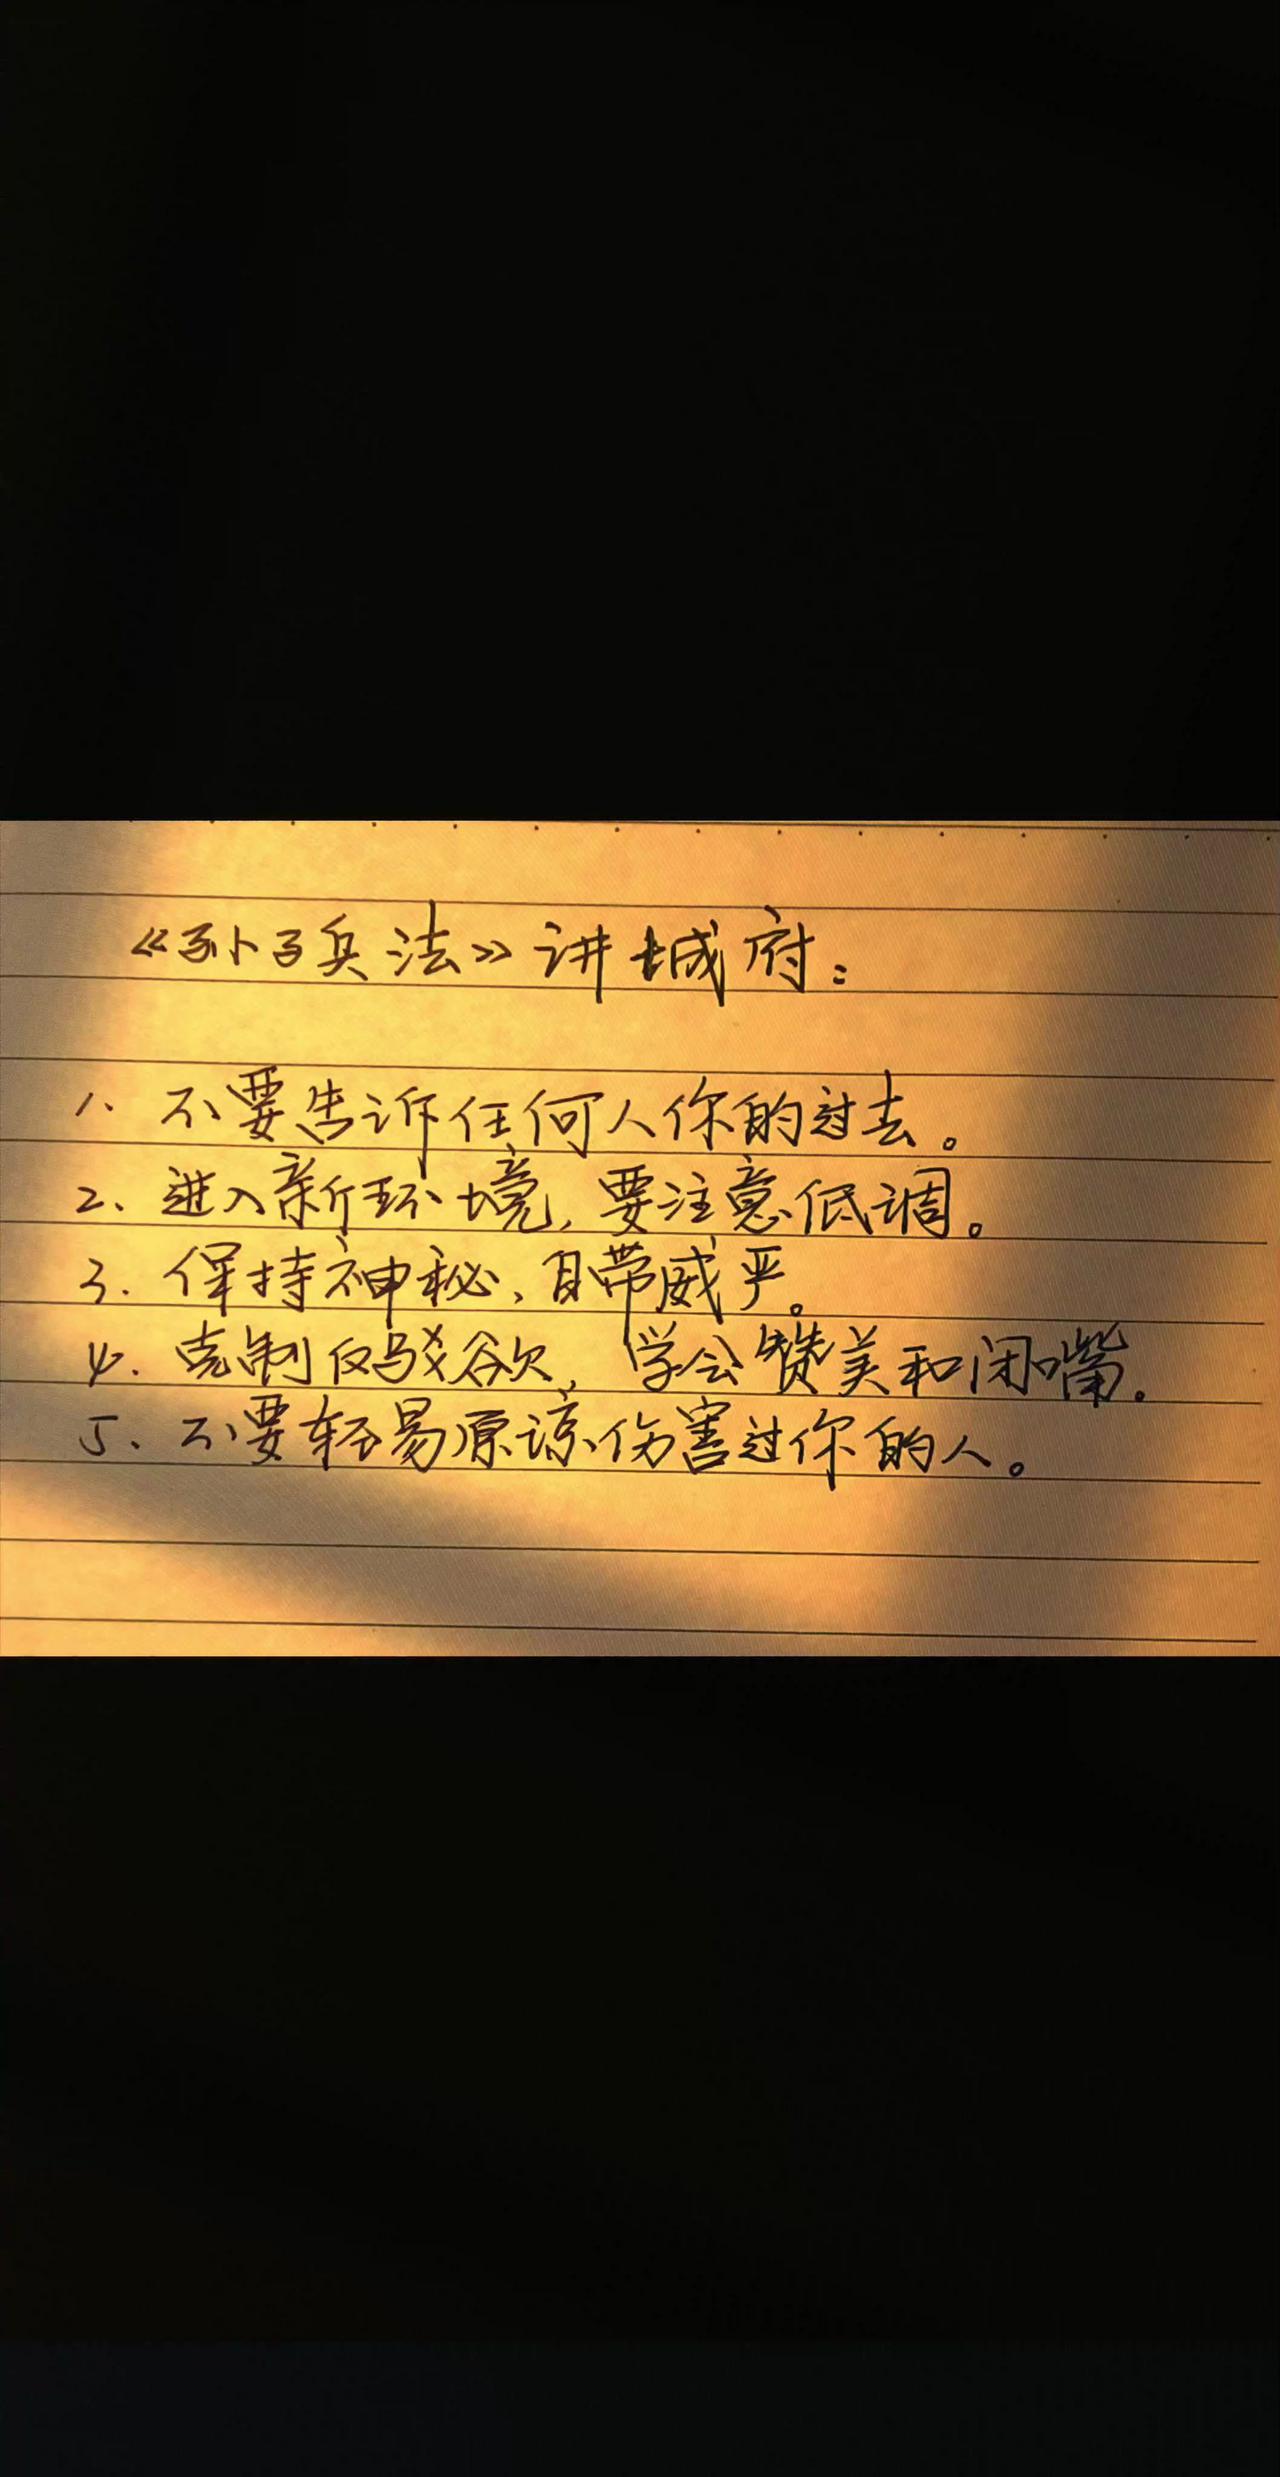 《孙子兵法》讲城府:
1、不要告诉任何人你的过去。
2、进入新环境,要注意低调。
3.保持神秘、自带威严。
4.克制反驳欲,学会赞美和闭嘴。
5、不要轻易原谅伤害过你的人。